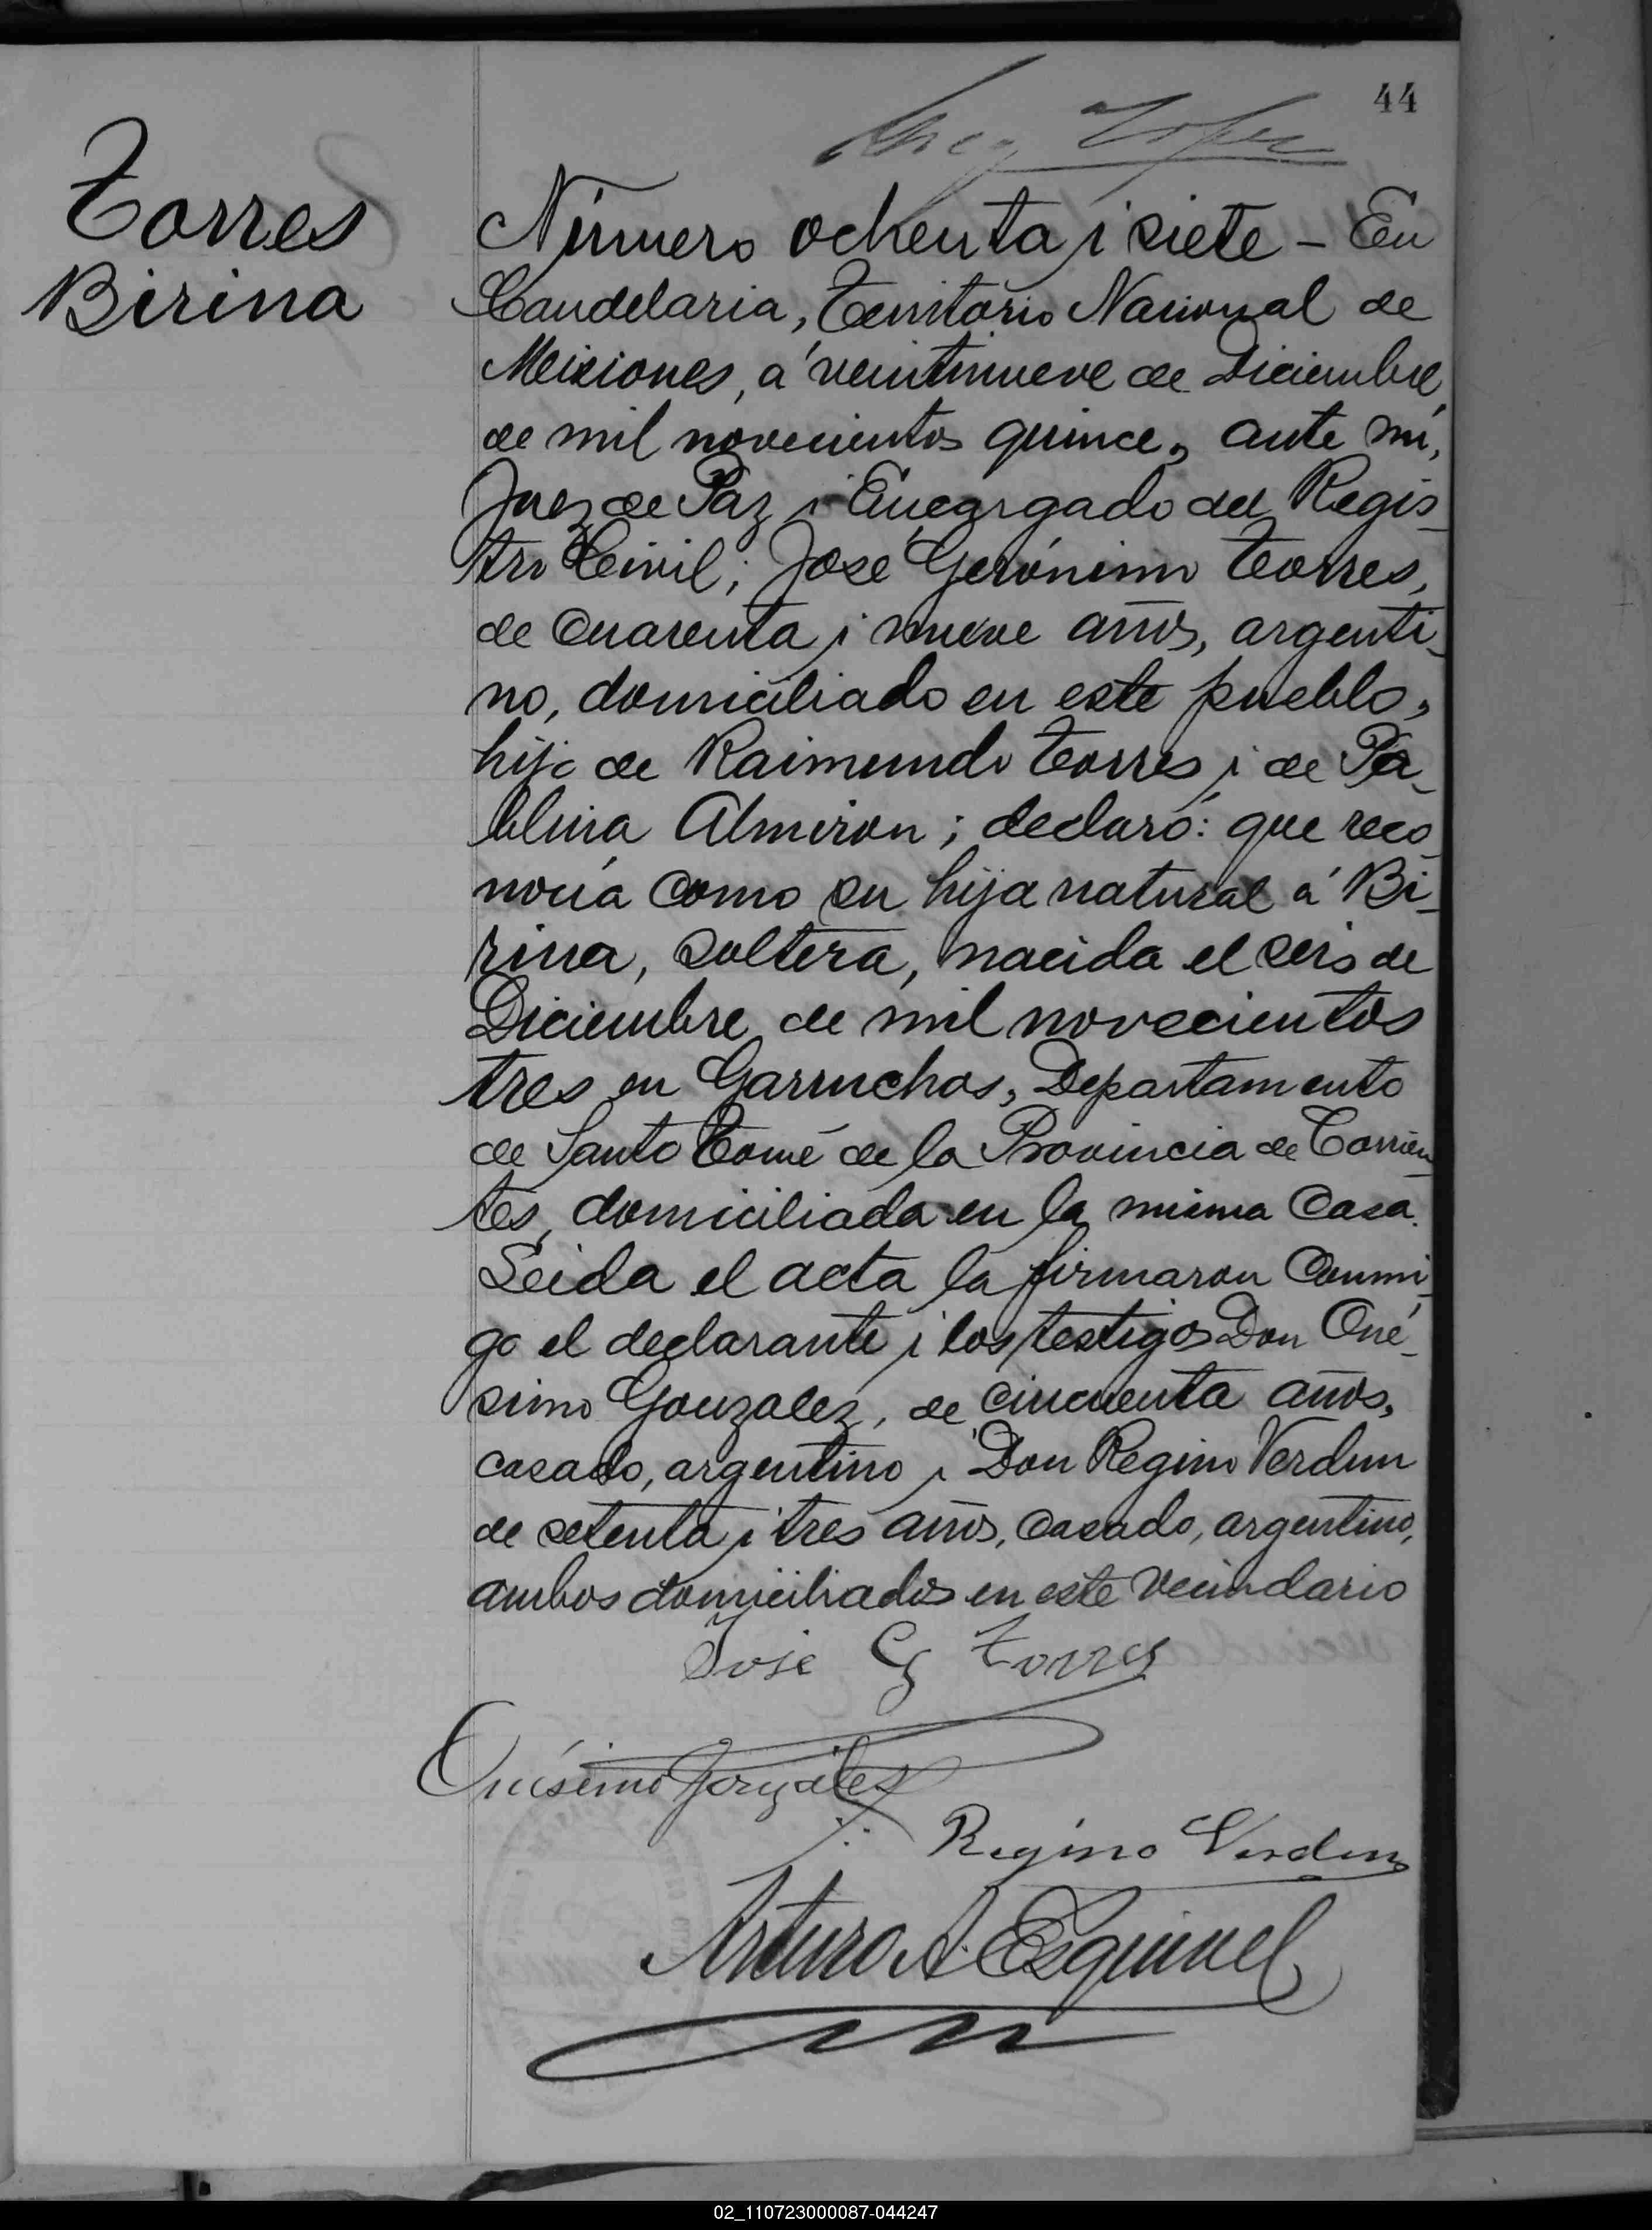 44
Torres
Birina
Número ochenta i siete - En
Candelaria, Territorio Nacional de
Misiones, á veintinueve de Diciembre
de mil novecientos quince, ante mi,
Juez de Paz i Encargado del Regis-
tro Civil; José Gerónimo Torres,
de cuarenta i nueve años, argenti-
no, domiciliado en este pueblo,
hijo de Raimundo Torres i de Pa-
blina Almiron; declaró: que reco-
nocía como su hija natural á Bi-
rina, soltera, nacida el seis de
Diciembre de mil novecientos
tres en Garruchos, Departamento
de Santo Tomé de la Provincia de Corrien-
tes, domiciliada en la misma casa.
Leida el acta la firmaron conmi-
go el declarante i los testigos Don Oné-
simo Gonzalez, de cincuenta años,
casado, argentino i Don Regino Verdun
de setenta i tres años, casado, argentino,
ambos domiciliados en este vecindario
José G Torres
Onésimo Gonzalez
Regino Verdun
Arturo A. Esquivel
02_110723000087-044247